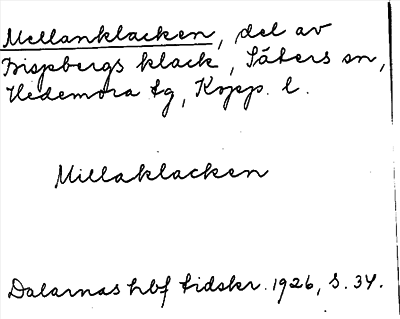 Mellanklacken, del av
Bispbergs klack, Säters sn,
Hedemora tg, Kopp. l.
Millaklacken
Dalarnas hbf tidskr. 1926, s. 34.